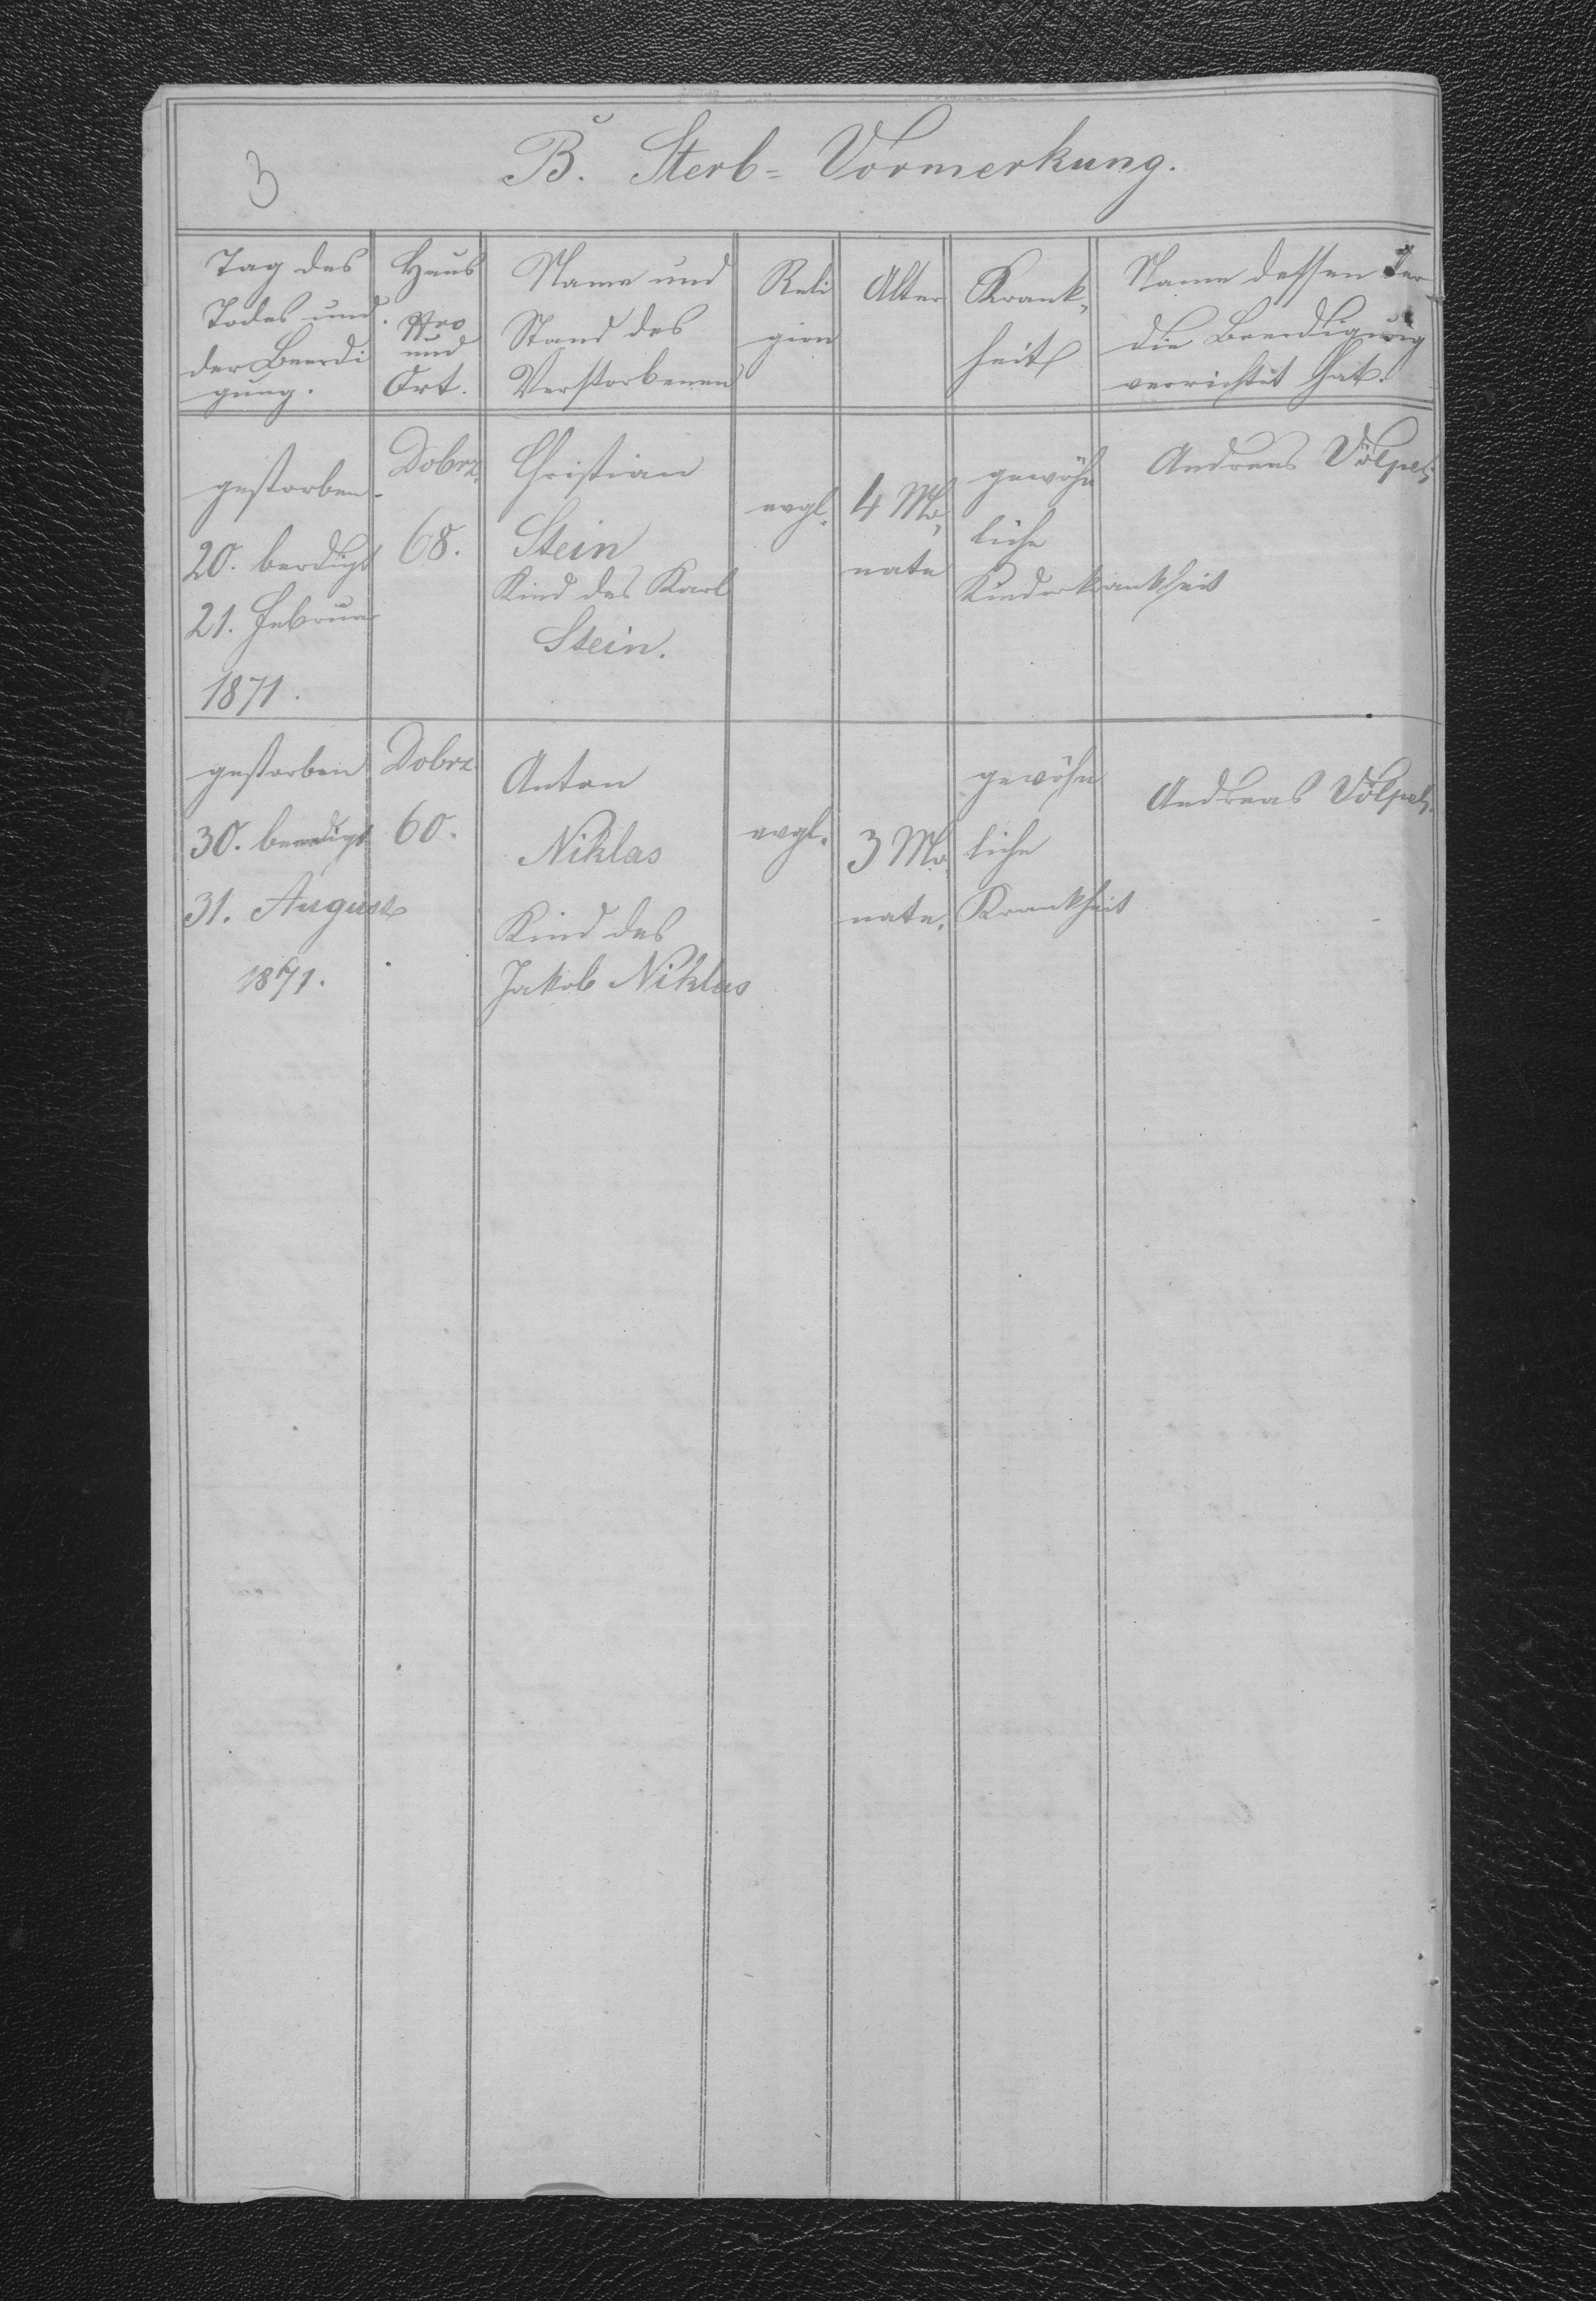 3
B. Sterb= Vormerkung.
Tag des
Todes und
der Beerdi
gung.
Haus
Nro
und
Ort.
Name und
Stand des
Verstorbenen
Reli
gion
Alter
Krank-
heit
Name dessen der
die Beerdigung
verrichtet hat.
gestorben
20. berdigt
21. Februar
1871.
Dobrz.
68.
Christian
Stein
Kind des Karl
Stein.
evgl.
4 Mo-
nate
gewöhn
liche
Kinderkrankheit
Andreas Völpel;
gestorben
30. beerdigt
31. August
1871.
Dobrz
60.
Anton
Niklas
Kind des
Jakob Niklas
evgl.
3 Mo
nate.
gewöhn
liche
Krankheit
Andreas Völpel;